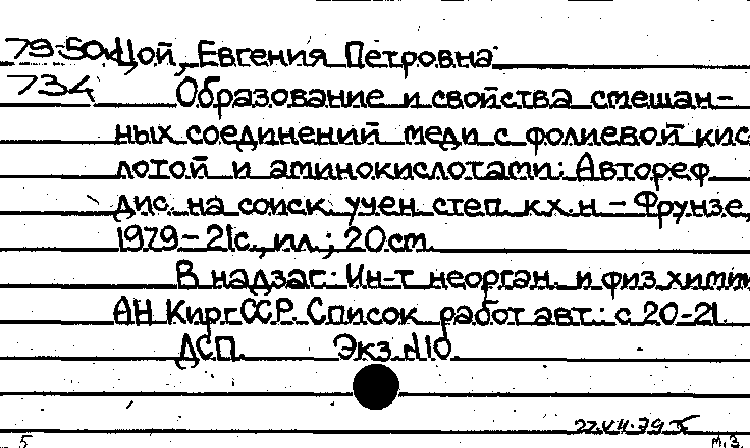 79-50 Цой, Евгения Петровна
734 Образование и свойства смешан-
ных соединений меди с фолиевой кис
лотой и аминокислотами: Автореф.
дис. на соиск. учен. степ. к.х.н. – Фрунзе,
1979 – 21с., ил.; 20см.
В надзаг: Ин-т неорган. и физ. химии
АН КиргССР. Список работ авт.: с 20-21.
ДСП. Экз. №10.
5 М.З.